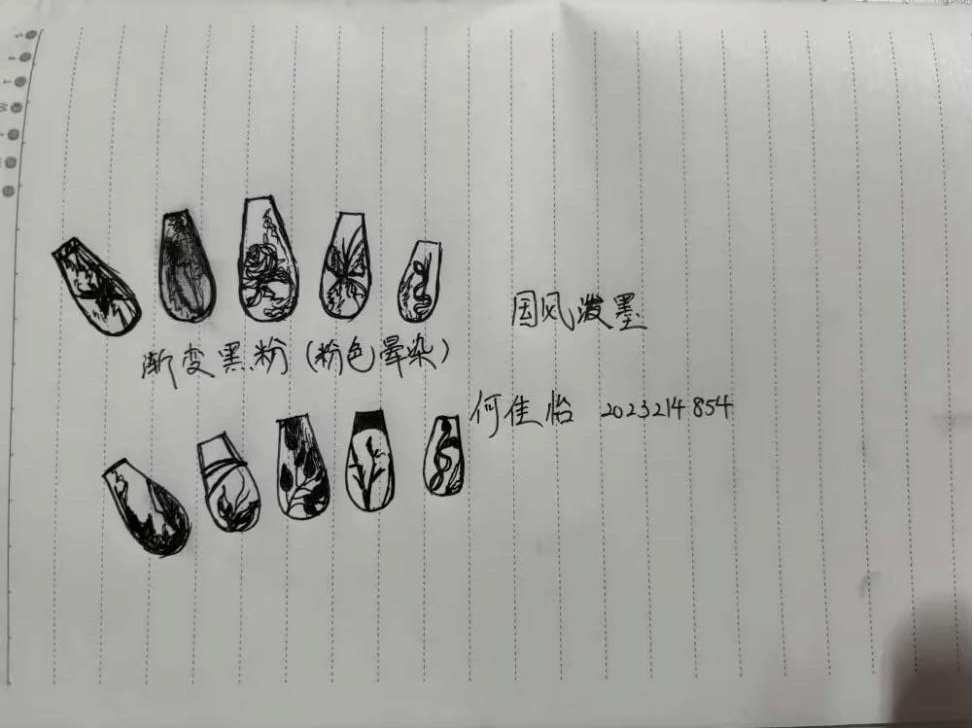 国风泼墨
渐变黑粉(粉色晕染)
何佳怡 2023214854